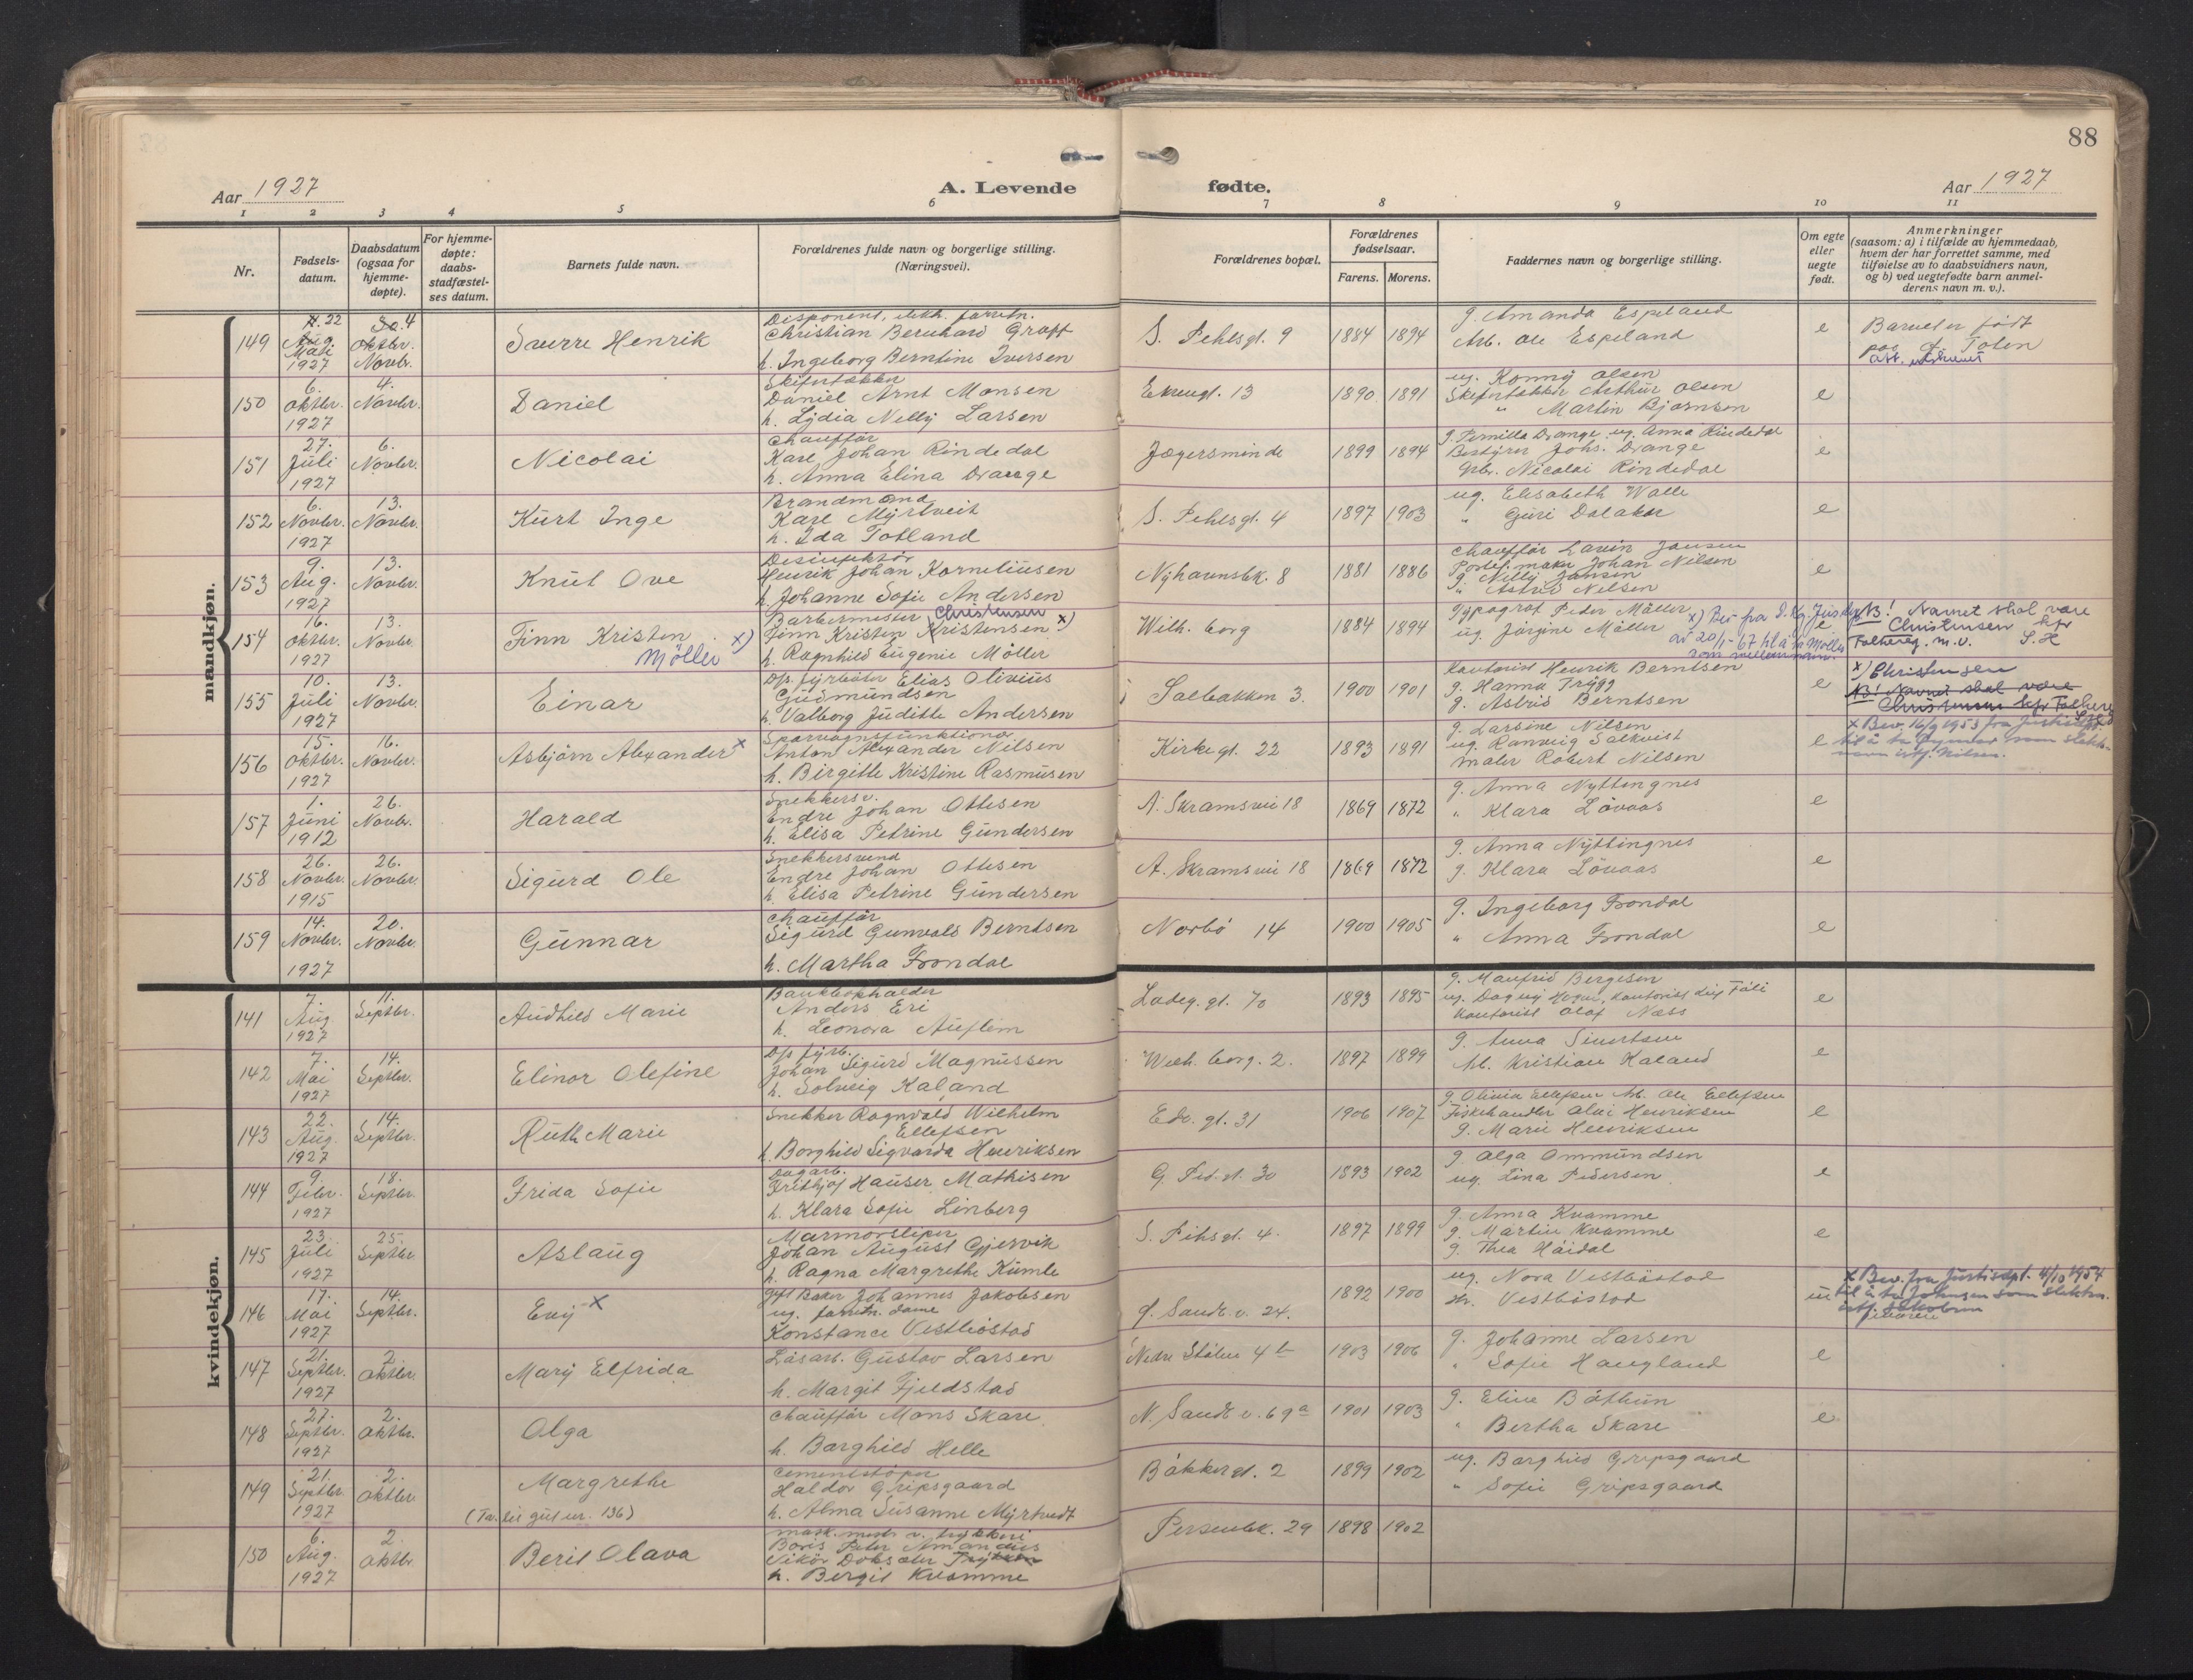 88
Aar 1927
A. Levende
fødte.
Aar 1927
1 2 3 4 5 6 7 8 9 10 11
Nr.
Fødsels-
datum.
Daabsdatum
(ogsaa for
hjemme-
døpte).
For hjemme-
døpte:
daabs-
stadfæstel-
ses datum.
Barnets fulde navn.
Forældrenes fulde navn og borgerlige stilling.
(Næringsvei).
Forældrenes bopæl.
Forældrenes
fødselsaar.
Farens. Morens.
Faddernes navn og borgerlige stilling.
Om egte
eller
uegte
født.
Anmerkninger
(saasom: a) i tilfælde av hjemmedaab,
hvem der har forrettet samme, med
tilføielse av to daabsvidners navn,
og b) ved uegtefødte barn anmel-
derens navn m. v.).
mandkjøn.
149
22
Mai
1927
4
Novbr.
Sverre Henrik
Disponent, elekt. forretn.
Christian Bernhard Graff
h. Ingeborg Berntine Iversen
S. Pehlsgt. 9
1884 1894
g. Amanda Espeland
Arb. Ole Espeland
e
Barnet er født
paa Toten
150
6.
Oktbr.
1927
4.
Novbr.
Daniel
Skifertækker
Daniel Arnt Monsen
h. Lydia Nelly Larsen
Ekrengt. 13
1890 1891
ug. Konny Olsen
Skifertækker Arthur Olsen
" Martin Bjørnsen
e
151
27.
Juli
1927
6.
Novbr.
Nicolai
Chauffør
Karl Johan Rindedal
h. Anna Elina Drange
Jægersminde
1899 1894
g. Pernilla Drange, ug. Anna Rindedal
Bestyrer Johs. Drange
Gbr. Nicolai Rindedal
e
152
6.
Novbr.
1927
13.
Novbr.
Kurt Inge
Brandmand
Karl Myrtveit
h. Ida Totland
S. Pehlsgt. 4
1897 1903
ug. Elisabeth Walle
" Guri Dalaker
e
153
9.
Aug.
1927
13.
Novbr.
Knut Ove
Desinfektør
Henrik Johan Korneliusen
h. Johanne Sofie Andersen
Nyhavnsbk. 8
1881 1886
Chauffør Lavin Jansen
Portef. maker Johan Nilsen
g. Nelly Jansen
" Astrid Nilsen
e
154
16.
Oktbr.
1927
13.
Novbr.
Finn Kristen x)
Möller
Barbermester Christensen
Finn Kristen Kristensen x)
h. Ragnhild Eugenie Möller
Wilh. borg
1884 1894
Typograf Peder Möller
ug. Jørgine Möller
x) Bev. fra d. Kg. Just.dp.
av 20/1-67 til å ta Möller
som mellomnavn.
e
NB! Navnet skal være
Christensen kfr
Folkereg. m.v. S.H
155
10.
Juli
1927
13.
Novbr.
Einar
D/s fyrbøter Elias Olivius
Gudmundsen
h. Valborg Judithe Andersen
Salbakken 3.
1900 1901
Kontorist Henrik Berntsen
g. Hanna Trygg
g. Astrid Berntsen
e
x) Christensen
NB! Navnet skal være
Christensen kfr Folkereg.
156
15.
Oktbr.
1927
16.
Novbr.
Asbjørn Alexander x
Sporvognsfunktionær
Anton Alexander Nilsen
h. Birgitte Kristine Rasmusen
Kirkegt. 22
1893 1891
g. Larsine Nilsen
ug. Ranveig Salkvist
maler Robert Nilsen
e
x Bev. 16/9 1953 fra Justisdpt.
til å ta som slekts-
navn istf. Nilsen.
157
1.
Juni
1912
26.
Novbr.
Harald
Snekkersv.
Endre Johan Ottesen
h. Elisa Petrine Gundersen
A. Skramsvei 18
1869 1872
g. Anna Nyttingnes
" Klara Løvaas
e
158
26.
Novbr.
1915
26.
Novbr.
Sigurd Ole
Snekkersvend
Endre Johan Ottesen
h. Elisa Petrine Gundersen
A. Skramsvei 18
1869 1872
g. Anna Nyttingnes
g. Klara Løvaas
e
159
14.
Novbr.
1927
20.
Novbr.
Gunnar
Chauffør
Sigurd Gunvald Berntsen
h. Martha Frondal
Norbö 14
1900 1905
g. Ingeborg Frondal
" Anna Frondal
e
kvindekjøn.
141
7.
Aug
1927
11.
Septbr.
Audhild Marie
Bankbokholder
Anders Eri
h. Leonora Auflem
Ladeg. gt. 70
1893 1895
g. Manfrid Bergesen
ug. Dagny
Kontorist Olaf Næss
e
142
7.
Mai
1927
14.
Septbr.
Elinor Olefine
D/s fyrb.
Johan Sigurd Magnussen
h. Solveig Kaland
Wilh. borg. 2.
1897 1899
g. Anna Sivertsen
Arb. Kristian Kaland
e
143
22.
Aug.
1927
14.
Septbr.
Ruth Marie
Snekker Ragnvald Wilhelm
Ellefsen
h. Borghild Sigvarda Henriksen
Edv. gt. 31
1906 1907
g. Olivia Ellefsen Arb. Ole Ellefsen
Fiskehandler Alvi Henriksen
g. Marie Henriksen
e
144
9.
Febr.
1927
18.
Septbr.
Frida Sofie
Dagarb.
Frithjof Hauser Mathisen
h. Klara Sofie Linberg
G. Ped. gt. 30
1893 1902
g. Olga Ommundsen
ug. Lina Pedersen
e
145
23.
Juli
1927
25.
Septbr
Aslaug
Marmorsliper
Johan August Gjersvik
h. Ragna Margrethe Kumle
S. Pihsgt. 4.
1897 1899
g. Anna Kvamme
g. Martin Kvamme
g. Thea Høidal
e
146
17.
Mai
1927
14.
Septbr.
Evy x
gift Baker Johannes Jakobsen
ug. forretn. dame
Konstance Vestbøstad
N. Sandv. v. 24.
1892 1900
ug. Nora Vestbøstad
Hr. Vestbøstad
u
x Bev. fra Justisdpt. 4/10 1954
til å ta Johnsen som slektsn.
istf. Jakobsen
147
21.
Septbr.
1927
2.
Oktbr.
Mary Elfrida
Løsarb. Gustav Larsen
h. Margit Fjeldstad
Nedre Stølen 4 b
1903 1906
g. Johanne Larsen
" Sofie Haugland
e
148
27.
Septbr.
1927
2.
Oktbr.
Olga
Chauffør Mons Skare
h. Borghild Helle
N. Sandv. v. 69a
1901 1903
g. Eline Bøthun
" Bertha Skare
e
149
21.
Septbr.
1927
2.
Oktbr
Margrethe
Cementstøper
Haldor Gripsgaard
h. Alma Susanne Myrtvedt
Bakkegt. 2
1899 1902
ug. Borghild Gripsgaard
" Sofie Gripsgaard
150
6.
Aug.
1927
2.
Oktbr
Beril Olava
mask. mester v. trykkeri
Boris Peter Amandus
h. Bergit Kvamme
Persenbk. 29
1898 1902